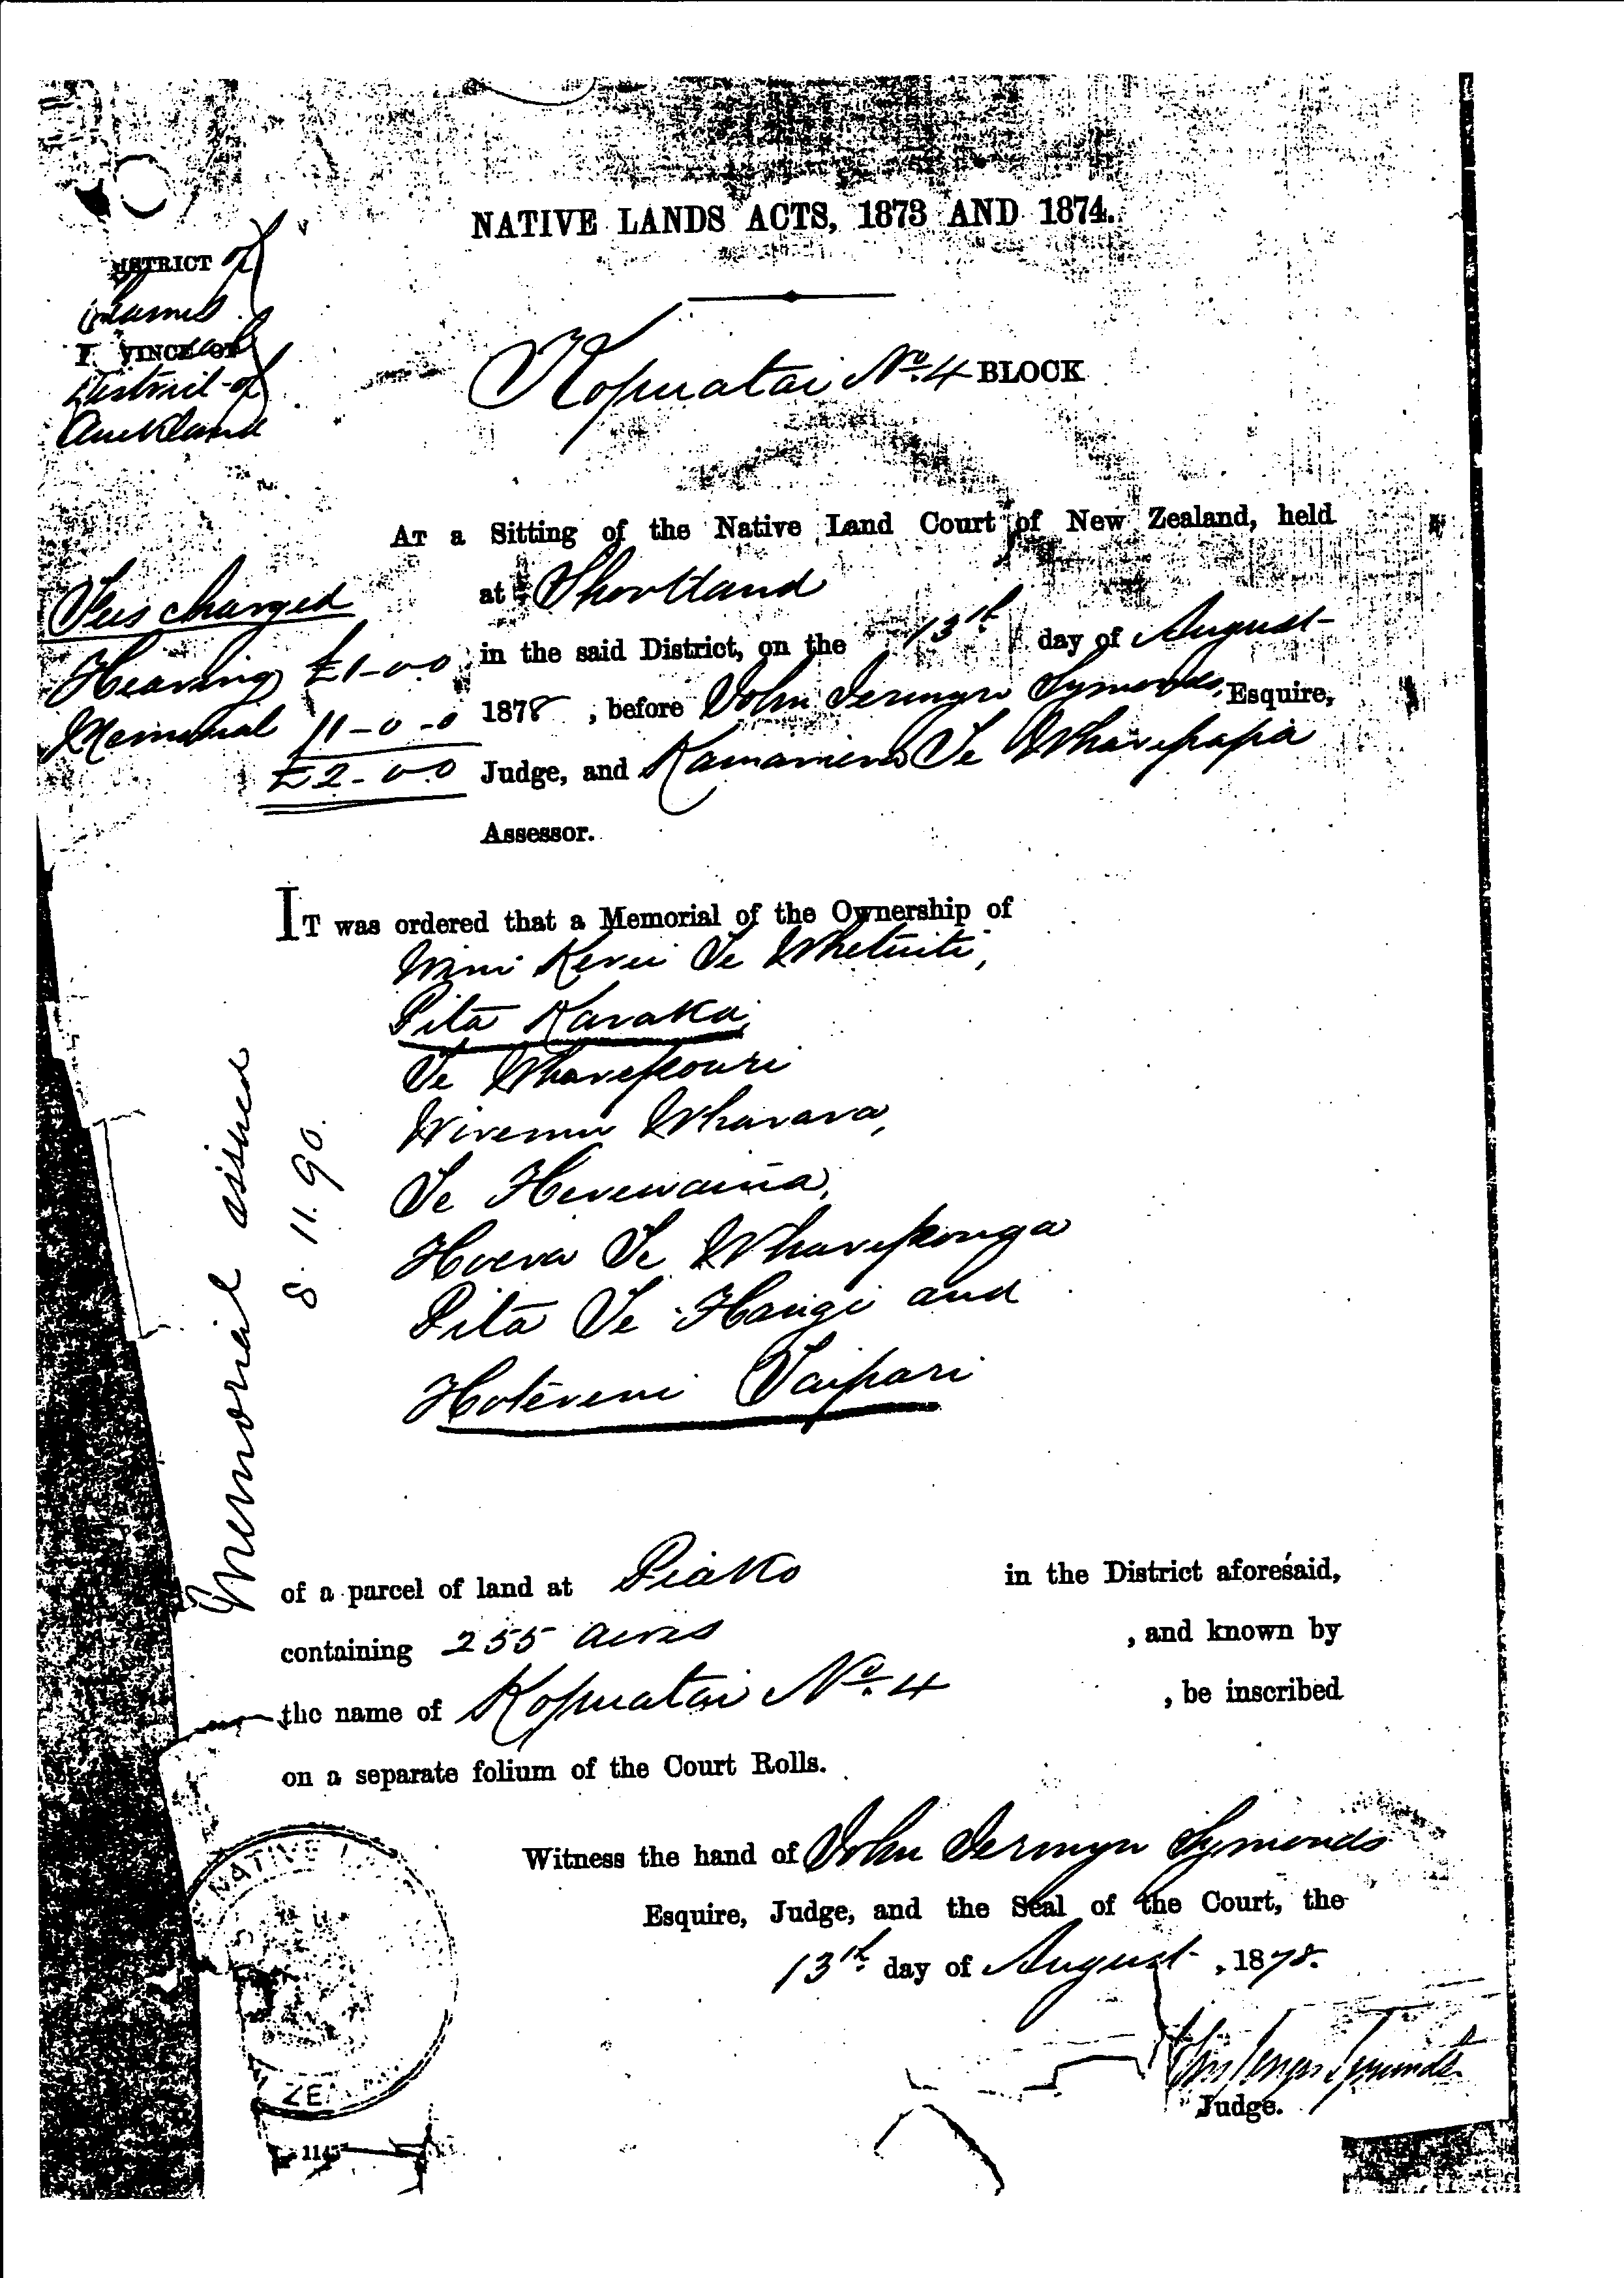 NATIVE LANDS ACTS, 1873 AND 1874.
DISTRICT of
Thames
VINCE OF
District of
Auckland
Kopuatai No. 4 BLOCK
AT a Sitting of the Native Land Court of New Zealand, held
at Shortland
in the said District, on the 13th day of August
1878, before John Jermyn Symonds, Esquire,
Judge, and Te Wharepapa
Assessor.
Fees charged
Hearing £1-0-0
Memorial 11-0-0
£2-0-0
IT was ordered that a Memorial of the Ownership of
Kerei Te Whetuiti,
Pita Karaka,
Te Wharepouri
Wiremu Wharara,
Te Herewaina,
Hoera Te Whareponga
Pita Te Hangi and
Hotereni Taipari
Memorial issued
8. 11. 90.
of a parcel of land at Piako in the District aforesaid,
containing 255 acres , and known by
the name of Kopuatai No. 4 , be inscribed
on a separate folium of the Court Rolls.
Witness the hand of John Jermyn Symonds
Esquire, Judge, and the Seal of the Court, the
13th day of August , 1878.
Judge.
NATIVE
ZEA